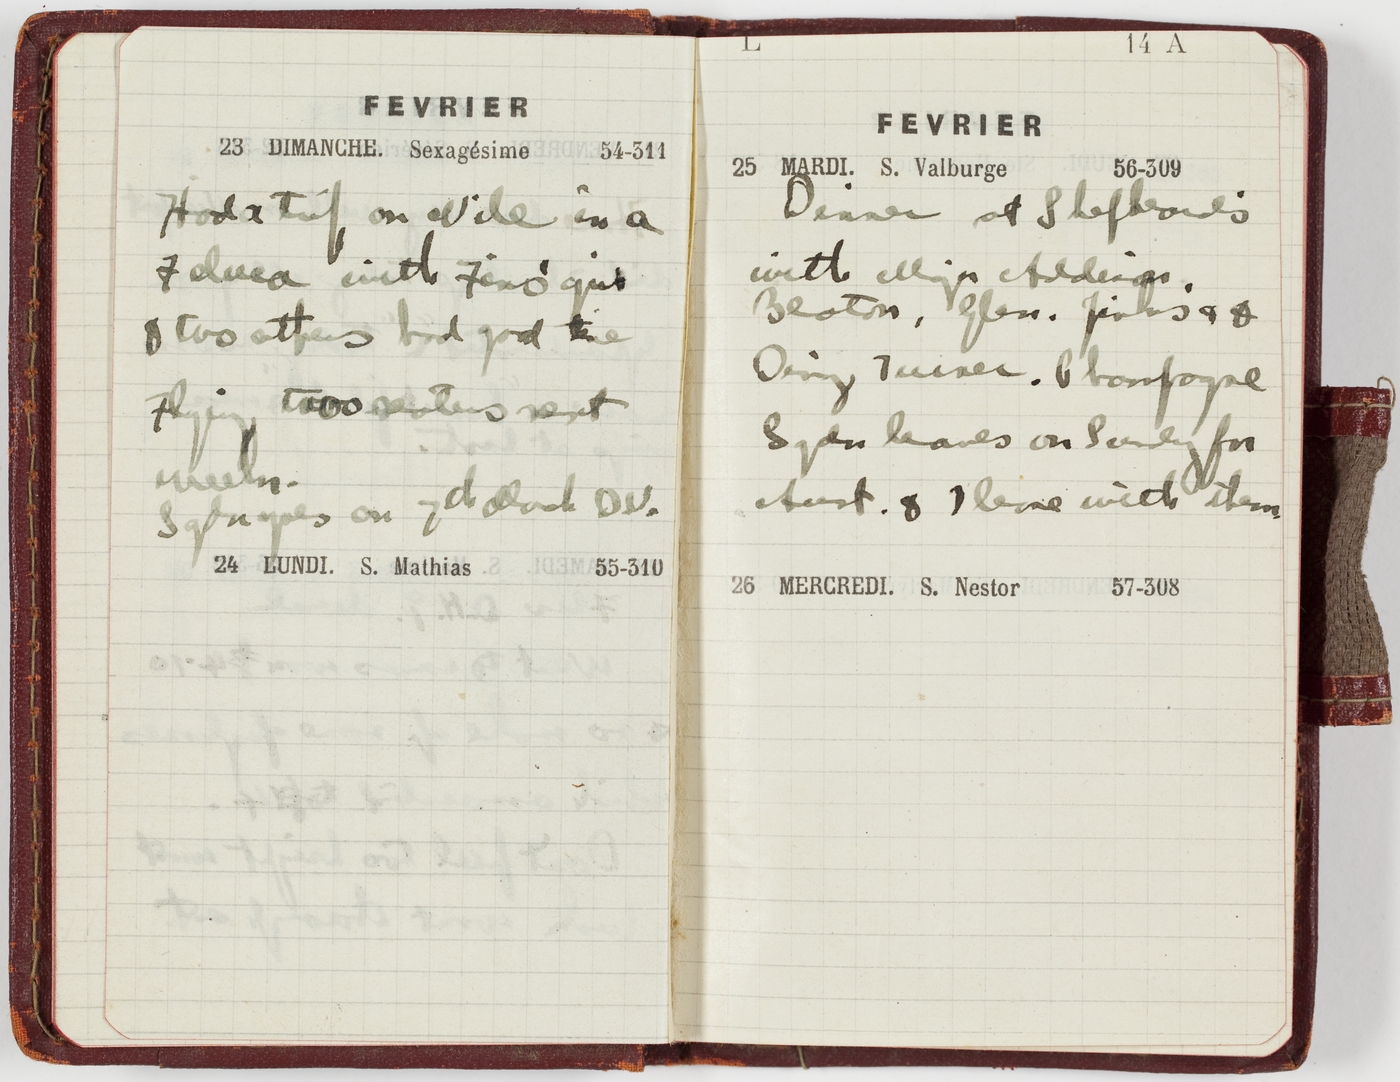 FEVRIER
23 DIMANCHE. Sexagésime 54-311
Had a trip on Nile in a
Feluca with
& two others had good time
Flying, two sent
week.
Sqdn goes on 7th March D.V.
24 LUNDI. S. Mathias 55-310
L 14 A
FEVRIER
25 MARDI. S. Valburge 56-309
Dinner at Shepheard's
with Major Addison,
Beaton, Glen. Jinks &
Turner. Champagne
Sqdn leaves on Sunday for
Aust. & I leave with them
26 MERCREDI. S. Nestor 57-308